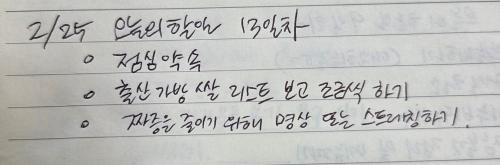 2/25 오늘의할일 13일차
○ 점심약속
○ 출산 가방 쌀 리스트 보고 조금씩 하기
○ 짜증을 줄이기 위해 명상 또는 스트레칭하기.